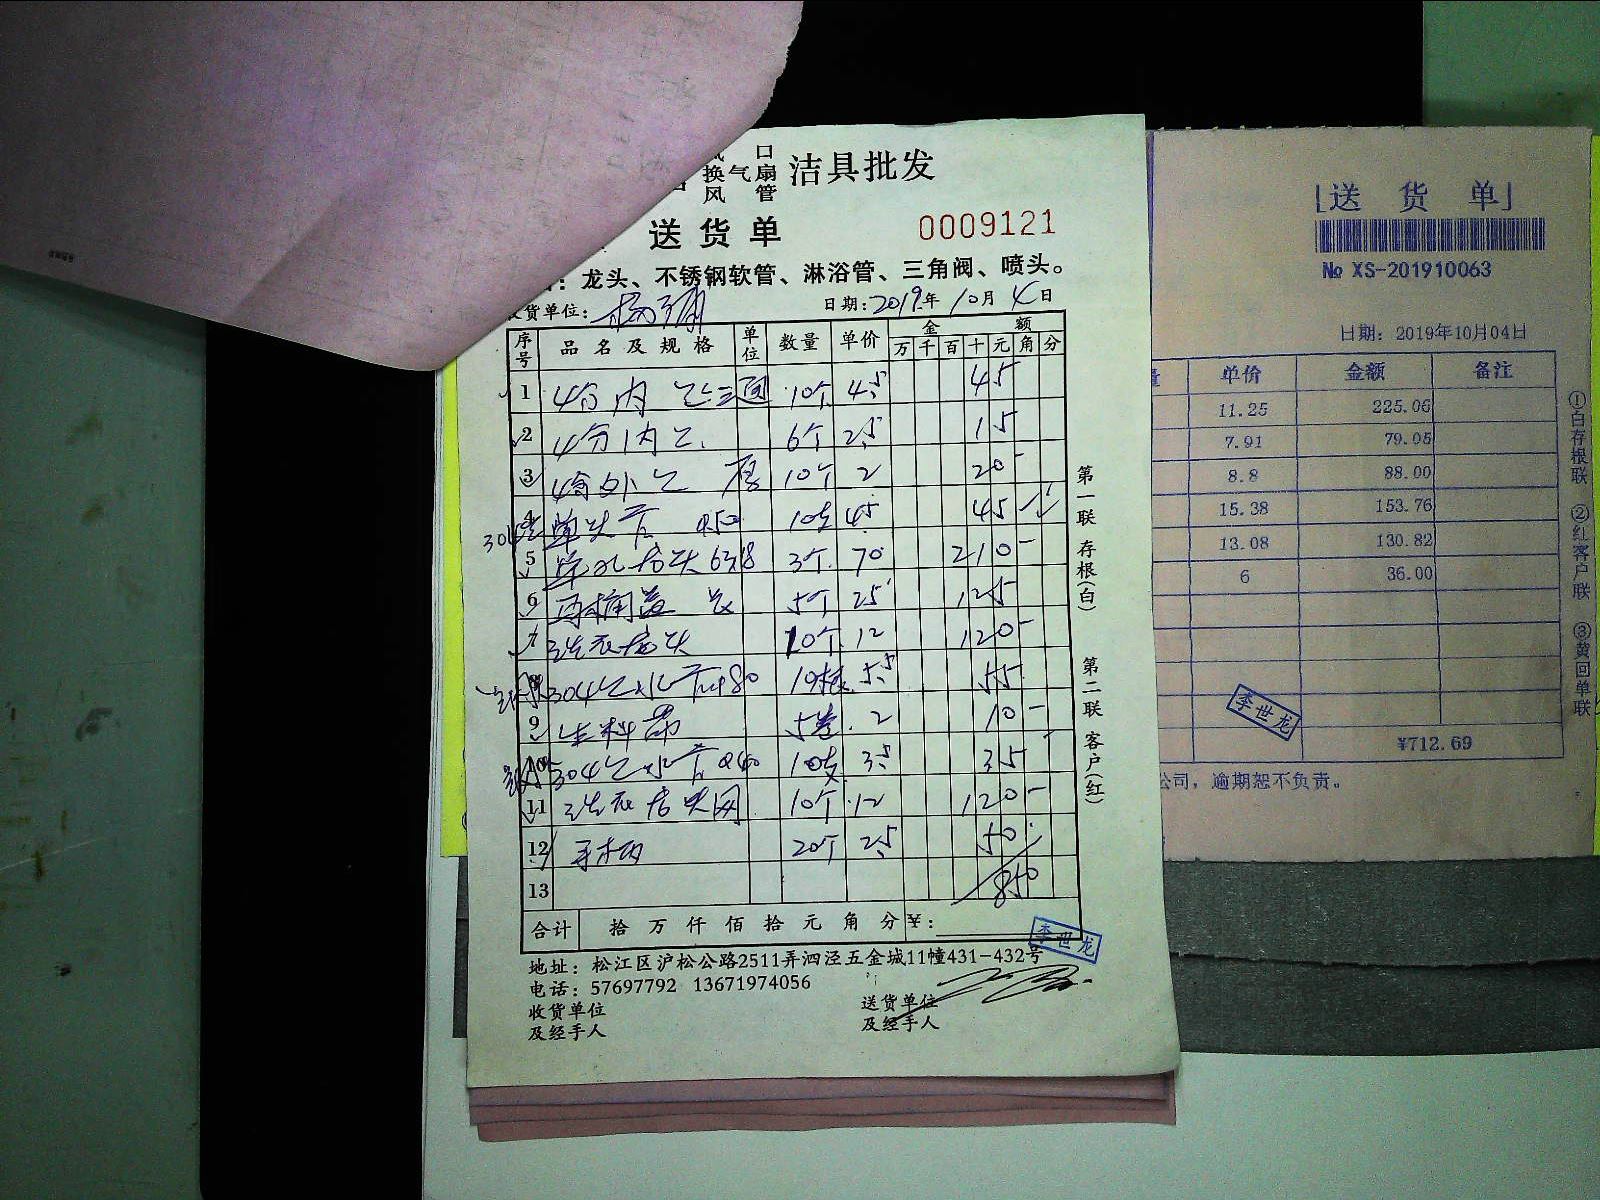 口
换气扇
风管
洁具批发
送货单
0009121
：龙头、不锈钢软管、淋浴管、三角阀、喷头。
货单位：
日期：2019年10月4日
序号 品名及规格 单位 数量 单价 金额
万 千 百 十 元 角 分
1 4分内 三通 10个 4.5 45
2 4分内 6个 2.5 15
3 10个 2 20-
4 单头 10支 4.5 45-
5 单孔龙头 3个 70 210-
6 5个 25 125
7 洗衣龙头 10个 12 120-
8 304 水 80 10根 5.5 55
9 生料带 5卷 2 10-
10 304 水 40 10支 3.5 35
11 洗衣龙头 10个 12 120-
12 手柄 20个 2.5 50
13 850
合计 拾万仟佰拾元角分 ¥：
李世龙
地址：松江区沪松公路2511弄泗泾五金城11幢431-432号
电话：57697792 13671974056
收货单位
及经手人
送货单位
及经手人
第一联 存根(白) 第二联 客户(红)
送货单
No XS-201910063
日期：2019年10月04日
量 单价 金额 备注
11.25 225.06
7.91 79.05
8.8 88.00
15.38 153.76
13.08 130.82
6 36.00
李世龙
¥712.69
公司，逾期恕不负责。
①白存根联 ②红客户联 ③黄回单联